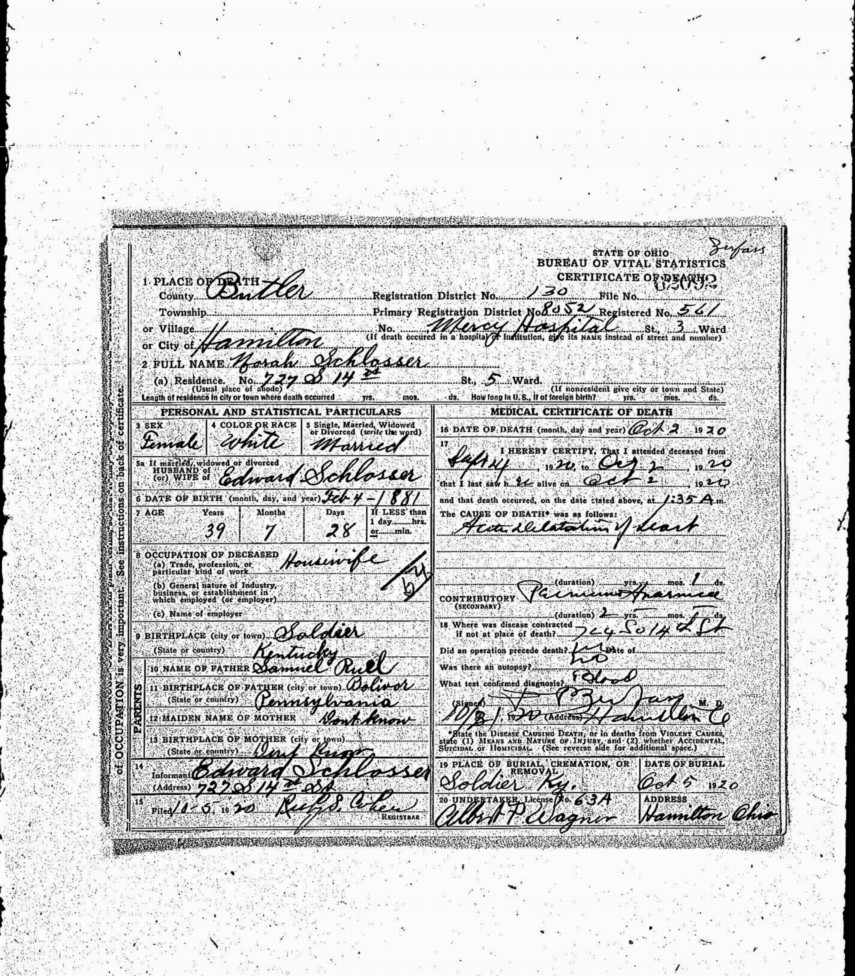 STATE OF OHIO
BUREAU OF VITAL STATISTICS
CERTIFICATE OF DEATH
62092
1 PLACE OF DEATH
County Butler Registration District No. 130 File No.
Township Primary Registration District No. 8052 Registered No. 561
or Village No. Mercy Hospital St., 3 Ward
or City of Hamilton (If death occured in a hospital or institution, give its NAME instead of street and number)
2 FULL NAME Norah Schlosser
(a) Residence. No. 727 S 14 St., 5 Ward.
(Usual place of abode) (If nonresident give city or town and State)
Length of residence in city or town where death occurred yrs. mos. ds. How long in U. S., if of foreign birth? yrs. mos. ds.
of OCCUPATION is very important. See instructions on back of certificate.
PERSONAL AND STATISTICAL PARTICULARS
3 SEX 4 COLOR OR RACE 5 Single, Married, Widowed
or Divorced (write the word)
Female White Married
5a If married, widowed or divorced
HUSBAND of
(or) WIFE of Edward Schlosser
6 DATE OF BIRTH (month, day, and year) Feb 4-1881
7 AGE Years Months Days If LESS than
1 day hrs.
or min.
39 7 28
8 OCCUPATION OF DECEASED
(a) Trade, profession, or
particular kind of work Housewife
(b) General nature of Industry,
business, or establishment in
which employed (or employer)
(c) Name of employer
9 BIRTHPLACE (city or town) Soldier
(State or country) Kentucky
PARENTS
10 NAME OF FATHER Samuel
11 BIRTHPLACE OF FATHER (city or town) Bolivor
(State or country) Pennsylvania
12 MAIDEN NAME OF MOTHER Dont Know
13 BIRTHPLACE OF MOTHER (city or town)
(State or country) Dont Know
14
Informant Edward Schlosser
(Address) 727 S 14 St
15
Filed 10-5 1920
REGISTRAR
MEDICAL CERTIFICATE OF DEATH
16 DATE OF DEATH (month, day and year) Oct 2 1920
17
I HEREBY CERTIFY, That I attended deceased from
1920, to 2 1920
that I last saw alive on Oct 2 1920
and that death occurred, on the date stated above, at 1:35 A m.
The CAUSE OF DEATH* was as follows:
Acute Dilatation of heart
(duration) yrs. mos. 1 ds.
CONTRIBUTORY
(SECONDARY)
(duration) 2 yrs. mos. ds.
18 Where was disease contracted
If not at place of death? So 14th St
Did an operation precede death? no Date of
Was there an autopsy? no
What test confirmed diagnosis? Blood
(Signed) M. D.
1920 (Address) Hamilton O
*State the DISEASE CAUSING DEATH, or in deaths from VIOLENT CAUSES,
state (1) MEANS AND NATURE OF INJURY, and (2) whether ACCIDENTAL,
SUICIDAL or HOMICIDAL. (See reverse side for additional space.)
19 PLACE OF BURIAL, CREMATION, OR
REMOVAL
DATE OF BURIAL
Soldier Ky. Oct 5 1920
20 UNDERTAKER, License No. 63A ADDRESS
Albert P Wagner Hamilton Ohio